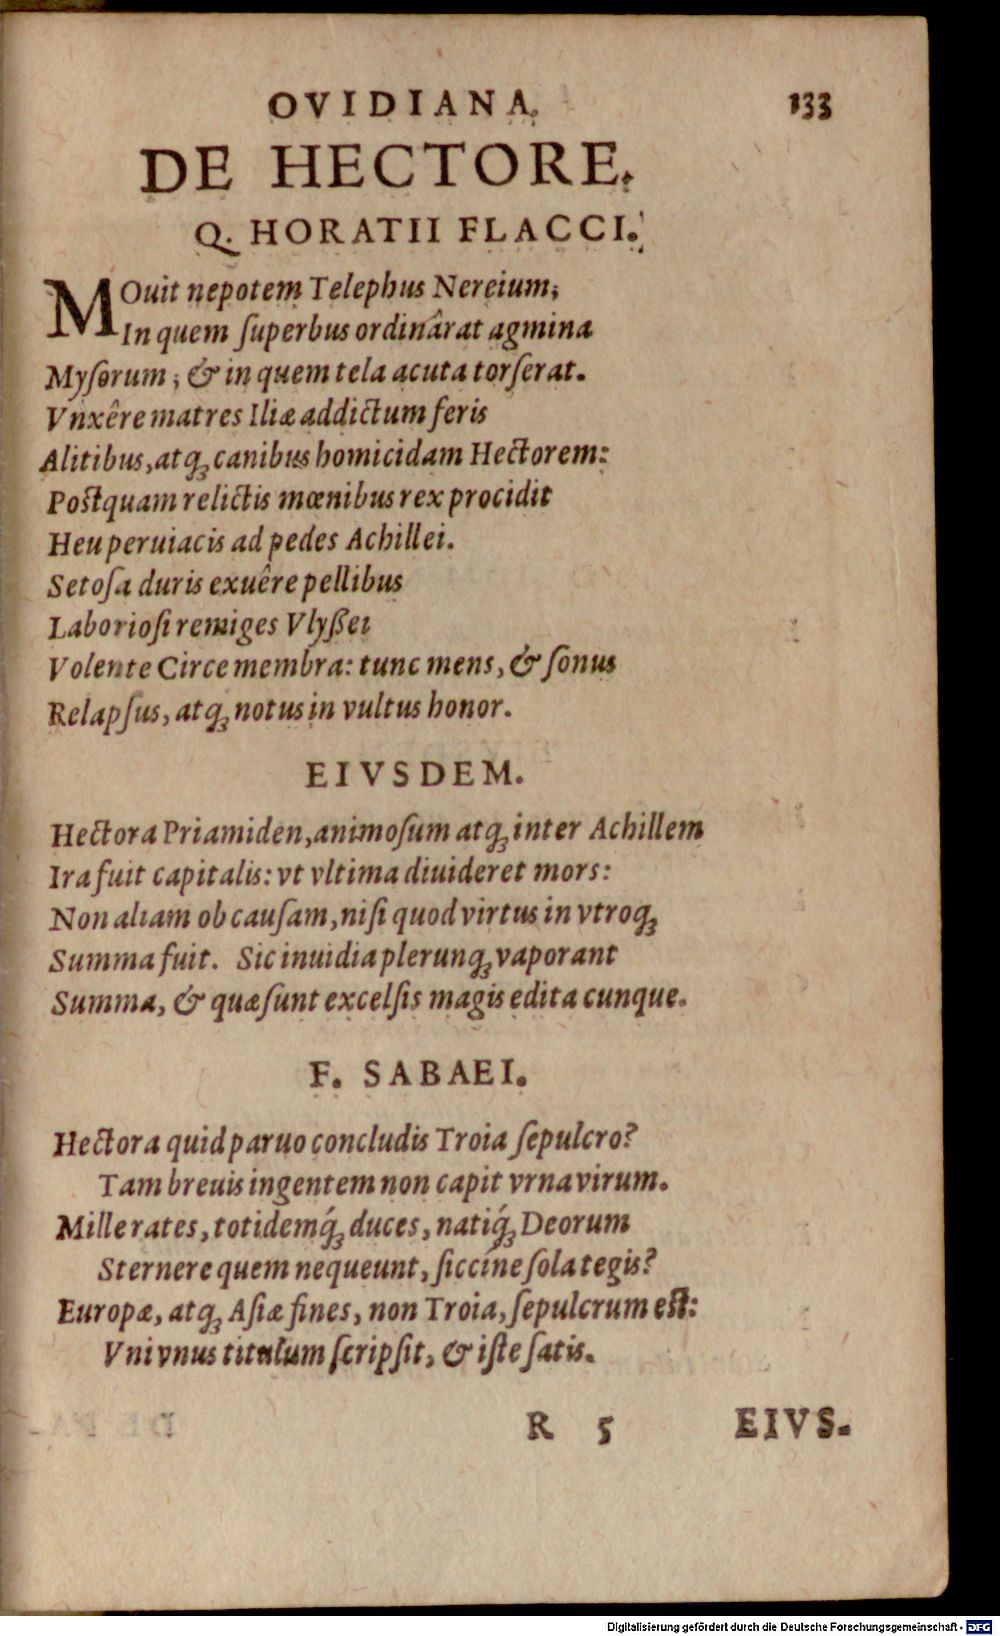 OVIDIANA. 133
DE HECTORE.
Q. HORATII FLACCI.
MOuit nepotem Telephus Nereium;
In quem ſuperbus ordinârat agmina
Myſorum; & in quem tela acuta torſerat.
Vnxêre matres Iliæ addictum feris
Alitibus, atq; canibus homicidam Hectorem:
Postquam relictis mœnibus rex procidit
Heu peruiacis ad pedes Achillei.
Setoſa duris exuêre pellibus
Laborioſi remiges Vlyßei
Volente Circe membra: tunc mens, & ſonus
Relapſus, atq; notus in vultus honor.
EIVSDEM.
Hectora Priamiden, animoſum atq; inter Achillem
Ira fuit capitalis: vt vltima diuideret mors:
Non aliam ob cauſam, niſi quod virtus in vtroq;
Summa fuit. Sic inuidia plerunq; vaporant
Summa, & quæ ſunt excelſis magis edita cunque.
F. SABAEI.
Hectora quid paruo concludis Troia ſepulcro?
Tam breuis ingentem non capit vrna virum.
Mille rates, totidemq́; duces, natiq́; Deorum
Sternere quem nequeunt, ſiccíne ſola tegis?
Europæ, atq; Aſiæ fines, non Troia, ſepulcrum est:
Vni vnus titulum ſcripſit, & iſte ſatis.
R 5 EIVS-
Digitalisierung gefördert durch die Deutsche Forschungsgemeinschaft - DFG